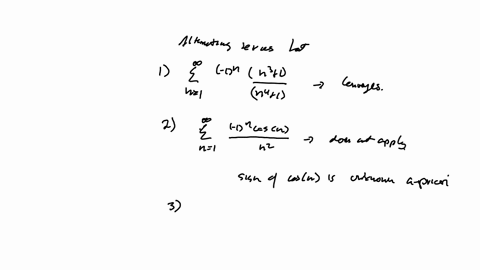 Alternating series test
1) ∑_{n=1}^{∞} (-1)^n (n^3+1)/(n^4+1) → Converges.
2) ∑_{n=1}^{∞} (-1)^n cos(n)/n^2 → does not apply
sign of cos(n) is unknown a-priori
3)